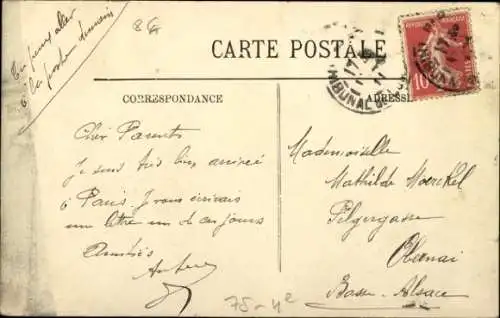 Tu peux aller
à la poste demain
86
CARTE POSTALE
CORRESPONDANCE
ADRESSE
10
TRIBUNAL
Cher Parents
Je suis très bien arrivée
à Paris. Je vous écrirais
une lettre un de ces jours
Amitiés
Mademoiselle
Mathilde Moerckel
Pilgergasse
Obernai
Basse-Alsace
75-4e